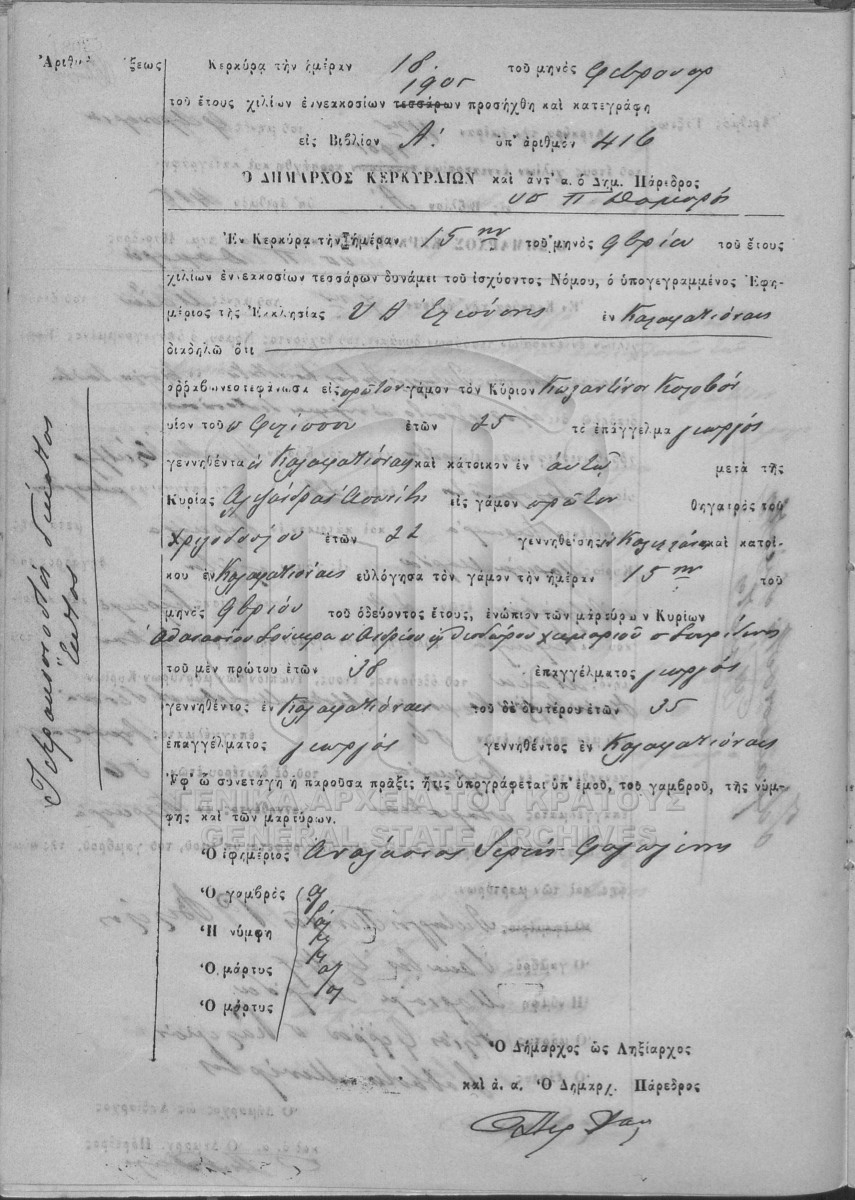 Ἀριθμὸς
ξεως
Κερκύρα τὴν ἡμέραν 18. τοῦ μηνὸς φεβρουαρ
1905
τοῦ ἔτους χιλίων ἐννεακοσίων τεσσάρων προσήχθη καὶ κατεγράφη
εἰς Βιβλίον Α! ὑπ' ἀριθμὸν 416
Ο ΔΗΜΑΡΧΟΣ ΚΕΡΚΥΡΑΙΩΝ καὶ ἀντ' α. ὁ Δημ. Πάρεδρος
Ἐν Κερκύρα τὴν ἡμέραν 15ην τοῦ μηνὸς 9βρίου τοῦ ἔτους
χιλίων ἐννεακοσίων τεσσάρων δυνάμει τοῦ ἰσχύοντος Νόμου, ὁ ὑπογεγραμμένος Ἐφη-
μέριος τῆς Ἐκκλησίας Υ Θ ἐν Καλαφατιόναις
διαδηλῶ ὅτι
ἀρραβωνεστεφάνωσα εἰς πρῶτον γάμον τὸν Κύριον Κωσταντῖνον
υἱὸν τοῦ π φιλίππου ἐτῶν 25 τὸ ἐπάγγελμα γεωργός
γεννηθέντα ἐν Καλαφατιόναις καὶ κάτοικον ἐν αὐτῷ μετὰ τῆς
Κυρίας Αλεξάνδρας εἰς γάμον πρῶτον θηγατρὸς τοῦ
Χριστοδούλου ἐτῶν 22 γεννηθείσης καὶ κατοί-
κου ἐν Καλαφατιόναις εὐλόγησα τὸν γάμον τὴν ἡμέραν 15ην τοῦ
μηνὸς 9βρίου τοῦ ὁδεύοντος ἔτους, ἐνώπιον τῶν μαρτύρων Κυρίων
Αθανασίου
τοῦ μὲν πρώτου ἐτῶν 38 ἐπαγγέλματος γεωργός
γεννηθέντος ἐν Καλαφατιόναις τοῦ δὲ δευτέρου ἐτῶν 35
ἐπαγγέλματος γεωργός γεννηθέντος ἐν Καλαφατιόναις
Ἐφ' ᾧ συνετάγη ἡ παροῦσα πρᾶξις ἥτις ὑπογράφεται ὑπ' ἐμοῦ, τοῦ γαμβροῦ, τῆς νύμ-
φης καὶ τῶν μαρτύρων.
ΓΕΝΙΚΑ ΑΡΧΕΙΑ ΤΟΥ ΚΡΑΤΟΥΣ
GENERAL STATE ARCHIVES
Ὁ ἐφημέριος Αναστάσιος
Ὁ γαμβρὸς
Ἡ νύμφη
Ὁ μάρτυς
Ὁ μάρτυς
Ὁ Δήμαρχος ὡς Ληξίαρχος
καὶ ἀ. α. Ὁ Δημαρχ. Πάρεδρος
Τετρακόσια δέκατος
ἕκτος